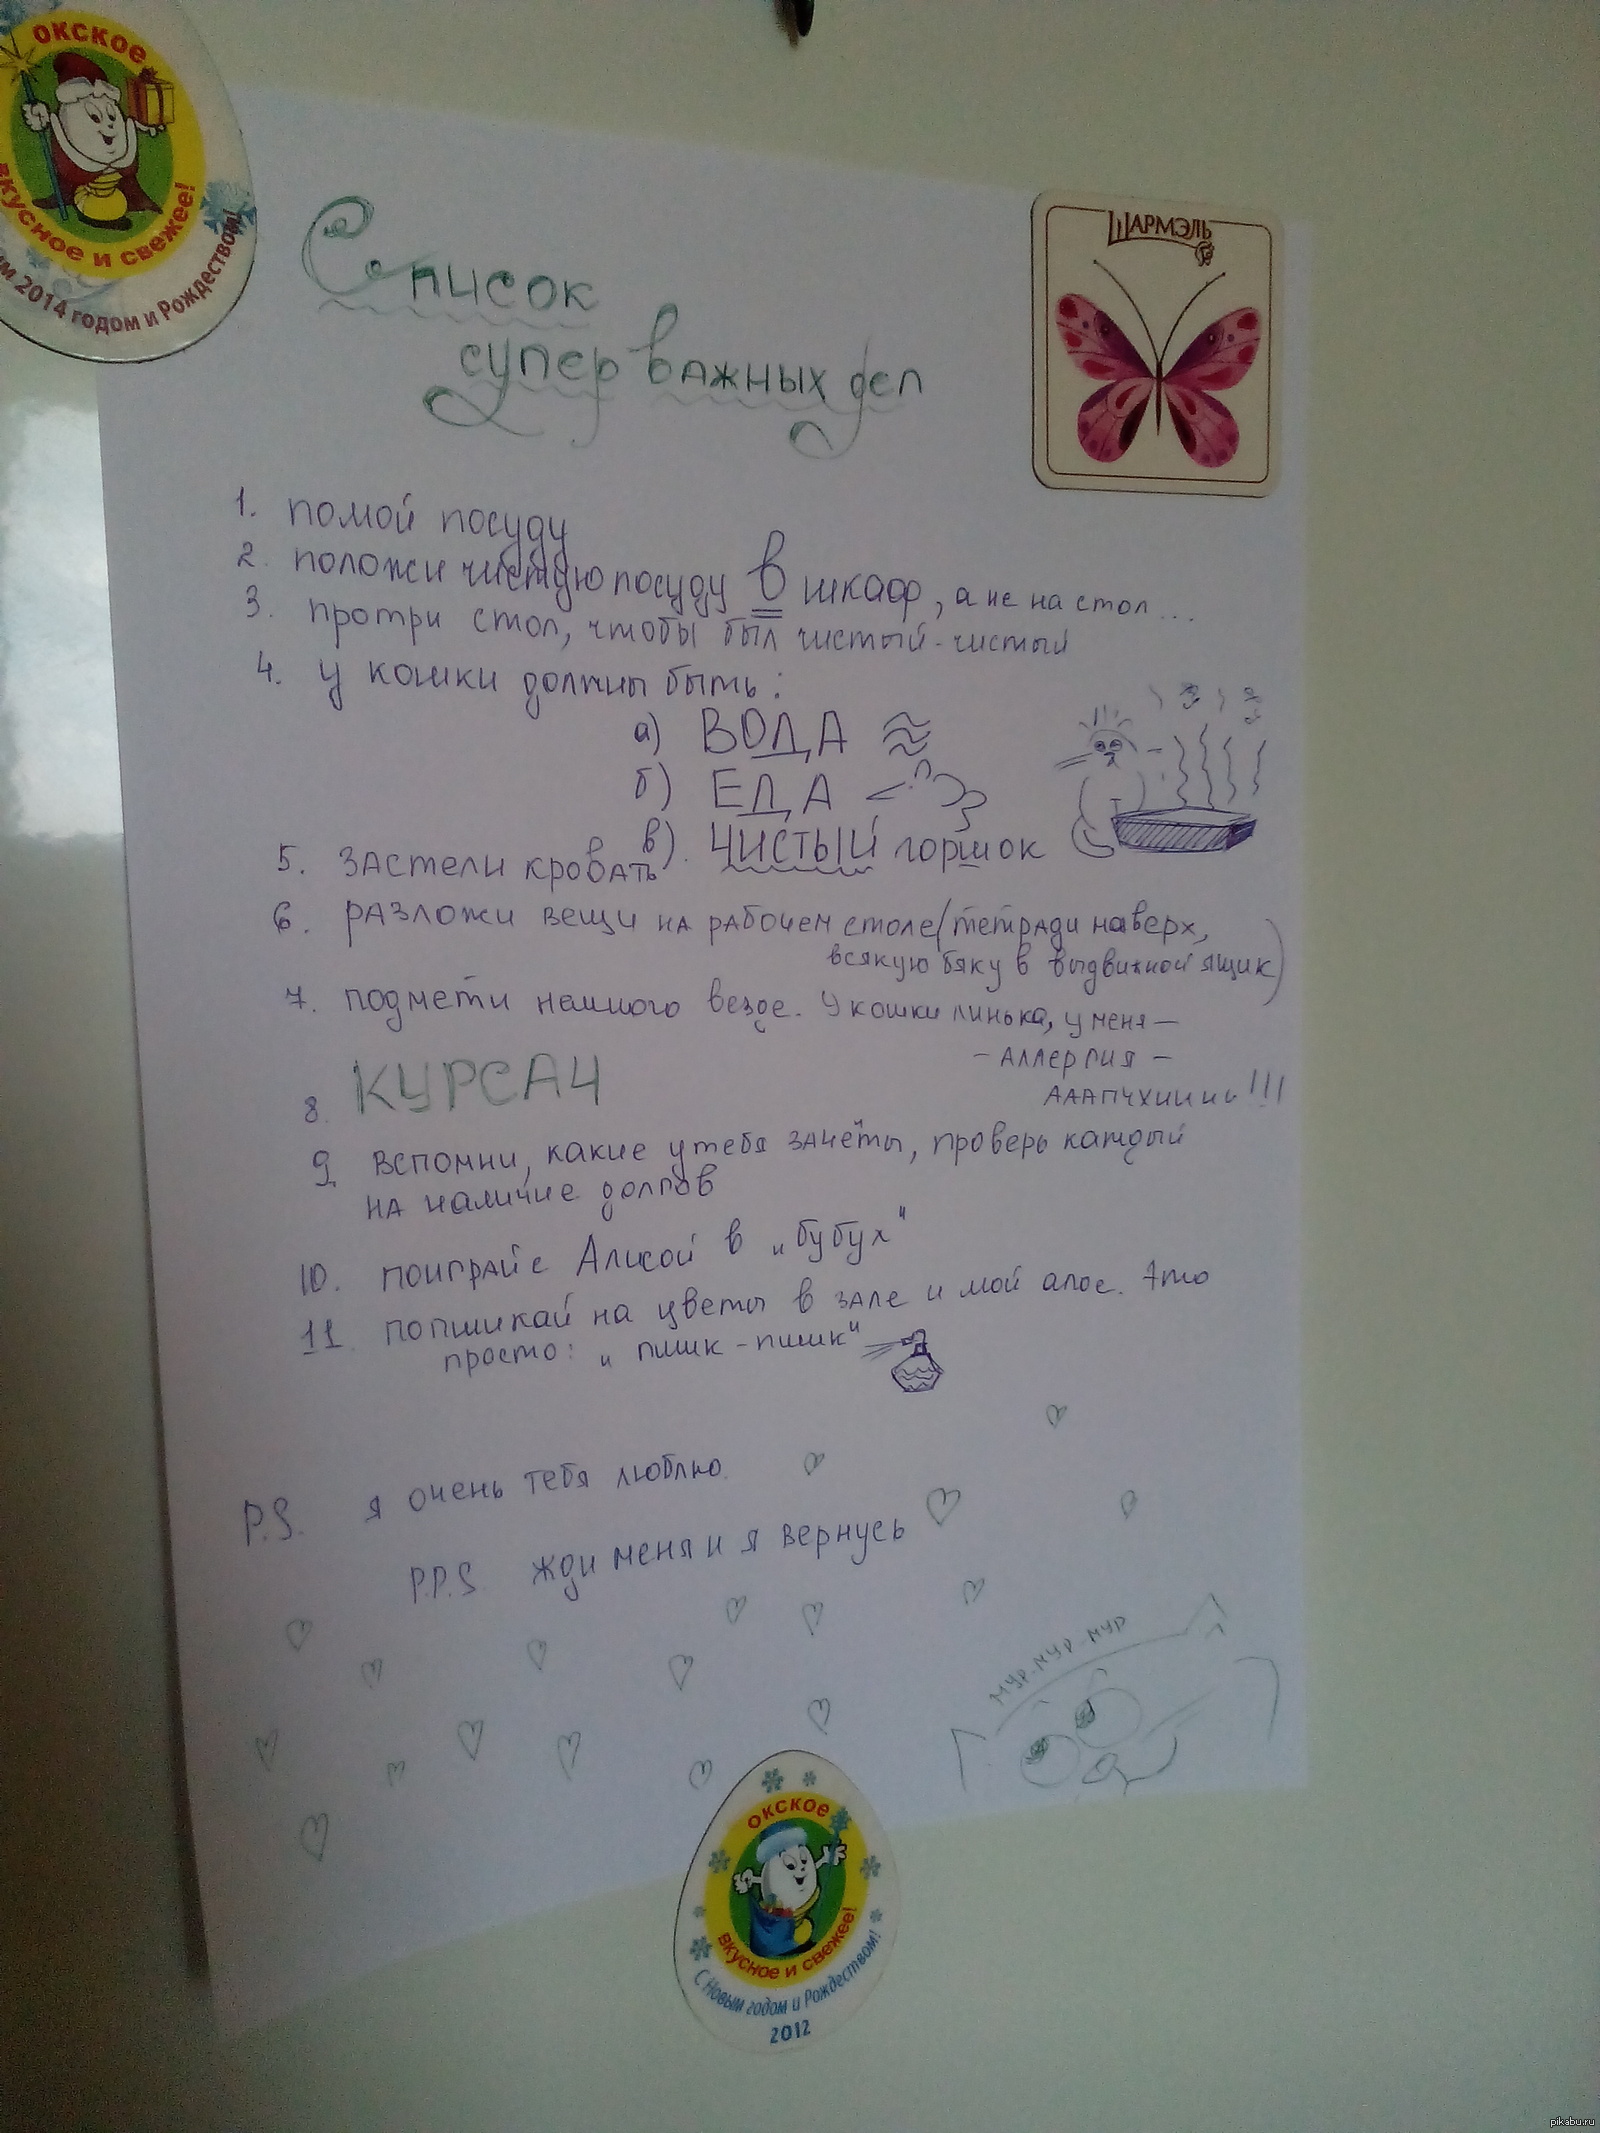 ОКСКОЕ
ВКУСНОЕ И СВЕЖЕЕ!
2014 годом и Рождеством!
ШАРМЭЛЬ
Список
супер важных дел
1. помой посуду
2. положи чистую посуду в шкаф, а не на стол...
3. протри стол, чтобы был чистый-чистый
4. у кошки должны быть:
а) ВОДА
б) ЕДА
в). ЧИСТЫЙ горшок
5. застели кровать
6. разложи вещи на рабочем столе (тетради наверх,
всякую бяку в выдвижной ящик)
7. подмети немного везде. У кошки линька, у меня –
– аллергия –
АААПЧХИИИИ!!!
8. КУРСАЧ
9 вспомни, какие у тебя зачёты, проверь каждый
на наличие долгов
10. поиграй с Алисой в „бубух"
11. попшикай на цветы в зале и мой алое. Это
просто: „пшик-пшик"
P.S. я очень тебя люблю.
P.P.S. жди меня и я вернусь
мур-мур-мур
ОКСКОЕ
ВКУСНОЕ И СВЕЖЕЕ!
С Новым годом и Рождеством!
2012
pikabu.ru